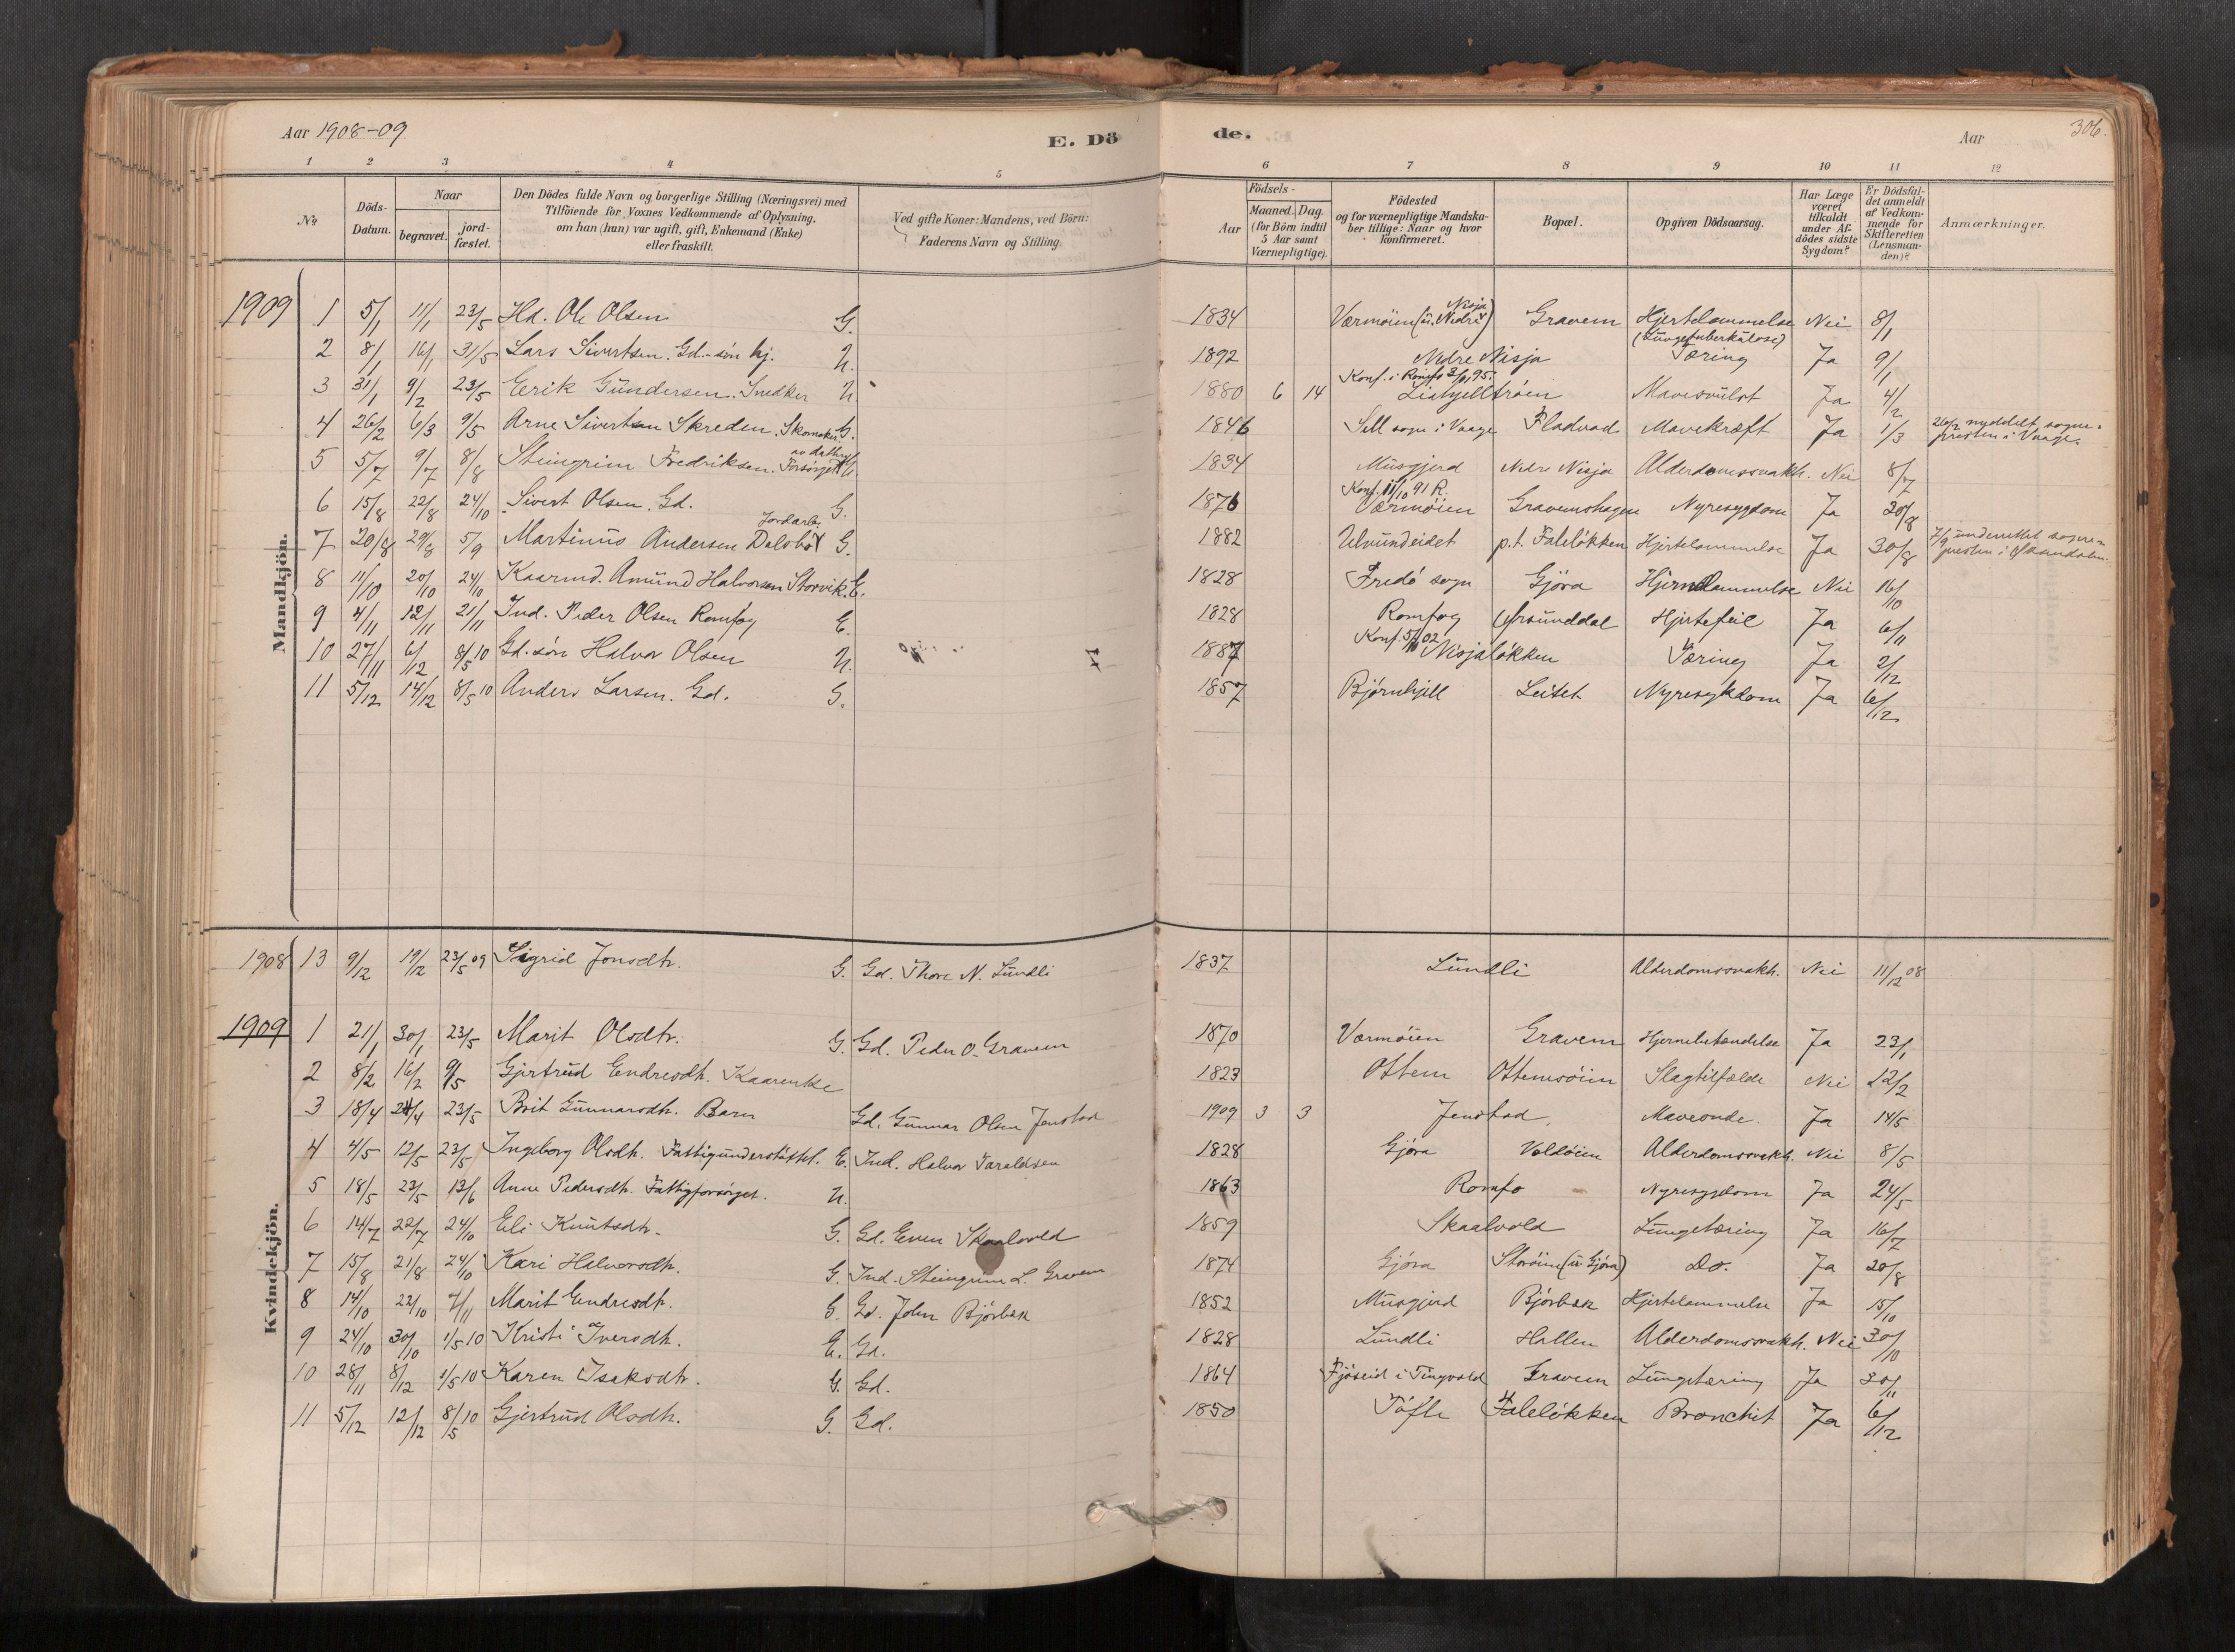 Aar 1908-09 E. Dö de. Aar 306.
1 2 3 4 5 6 7 8 9 10 11 12
No
Döds-Datum.
Naar
begravet.
jord-fæstet.
Den Dödes fulde Navn og borgerlige Stilling (Næringsvei) med
Tilföiende for Voxnes Vedkommende af Oplysning,
om han (hun) var ugift, gift, Enkemand (Enke)
eller fraskilt.
Ved gifte Koner: Mandens, ved Börn:
Faderens Navn og Stilling.
Födsels-
Aar
Maaned. Dag.
(for Börn indtil
5 Aar samt
Værnepligtige).
Födested
og for værnepligtige Mandska-
ber tillige: Naar og hvor
konfirmeret.
Bopæl.
Opgiven Dödsaarsag.
Har Læge
været
tilkaldt
under Af-
dödes sidste
Sygdom?
Er Dödsfal-
det anmeldt
af Vedkom-
mende for
Skifteretten
(Lensman-
den)?
Anmærkninger.
Mandkjön.
1909 1 5/1 11/1 23/5 Hd. Ole Olsen G. 1834 Værmøien (u. Nedre Nisja) Gravem Hjertelammelse Nei 8/1
2 8/1 16/1 31/5 Lars Sivertsen. Gd.-søn hj. U. 1892 Nedre Nisja (Lungetuberkulose) Tæring Ja 9/1
3 31/1 9/2 23/5 Eerik Gundersen. Snedker U. 1880 6 14 Konf. i Romfo 95. Liahjelltrøen Mavesvulst Ja 4/2
4 26/2 6/3 9/5 Arne Sivertsen Skreden. Skomaker G. 1846 Sell sogn i Vaage Fladvad Mavekræft Ja 1/3 sogne-presten i Vaage.
5 5/7 9/7 8/8 Steingrim Fredriksen. Forsørget av datter U. 1834 Musgjerd Nedre Nisja Alderdomssvakh. Nei 8/7
6 15/8 22/8 24/10 Sivert Olsen. Gd. G. 1876 Konf. 11/10 91 R. Værmøien Gravemshagen Nyresygdom Ja 20/8
7 20/8 29/8 5/9 Martinus Andersen Dalsbø Jordarb. G. 1882 Ulvundeidet p.t. Faleløkken Hjertelammelse Ja 30/8 7/9 underrettet sogne-presten i
8 11/10 20/10 24/10 Kaarmd. Amund Halvorsen Storvik. E. 1828 Fredø sogn Gjøra Hjernelammelse Nei 16/10
9 4/11 12/11 21/11 Ind. Peder Olsen Romfog E. 1828 Romfog Grøunddal Hjertefeil Ja 6/11
10 27/11 6/12 8/5 10 Gd. søn Halvor Olsen U. 1887 Konf. 02 Nisjaløkken Tæring Ja 2/12
11 5/12 14/12 8/5 10 Anders Larsen. Gd. G. 1857 Bjørnhjell Leitet Nyresykdom Ja 6/12
Kvindekjön.
1908 13 9/12 19/12 23/5 09 Sigrid Jonsdtr. G. Gd. Thore N. Lundli 1837 Lundli Alderdomssvakh. Nei 11/12 08
1909 1 21/1 30/1 23/5 Marit Olsdtr. G. Gd. Peder O. Gravem 1870 Værmøien Gravem Hjernebetændelse Ja 23/1
2 8/2 16/2 9/5 Gjertrud Endresdtr. Kaarenke 1823 Ottem Ottemsøien Slagtilfælde Nei 12/2
3 18/4 24/4 23/5 Brit Gunnarsdtr. Barn Gd. Gunnar Olsen Jenstad 1909 3 3 Jenstad. Maveonde. Ja 14/5
4 4/5 12/5 23/5 Ingeborg Olsdtr. Fattigunderstøttet. E. Ind. Halvor Taraldsen 1828 Gjøra Voldøien Alderdomssvakh. Nei 8/5
5 18/5 23/5 13/6 Anne Pedersdtr. Fattigforsørget. U. 1863 Romfo Nyresygdom Ja 24/5
6 14/7 22/7 24/10 Eli Knutsdtr. G. Gd. Even Skaalvold 1859 Skaalvold Lungetæring Ja 16/7
7 15/8 21/8 24/10 Kari Halvorsdtr. G. Ind. Steingrim L. Gravem 1874 Gjøra Storøien (u. Gjøra) Do. Ja 20/8
8 14/10 22/10 7/11 Marit Endresdtr. G. Gd. John Bjørbæk 1852 Musgjerd Bjørbæk Hjertelammelse Ja 15/10
9 24/10 30/10 1/5 10 Kristi Iversdtr. E. Gd. 1828 Lundli Hallen Alderdomssvakh. Nei 30/10
10 28/11 8/12 1/5 10 Karen Isaksdtr. G. Gd. 1864 Fjøseid i Tingvold Gravem Lungetæring Ja 30/11
11 5/12 12/12 8/5 10 Gjertrud Olsdtr. G. Gd. 1850 Tøfte Faleløkken Bronchit Ja 6/12